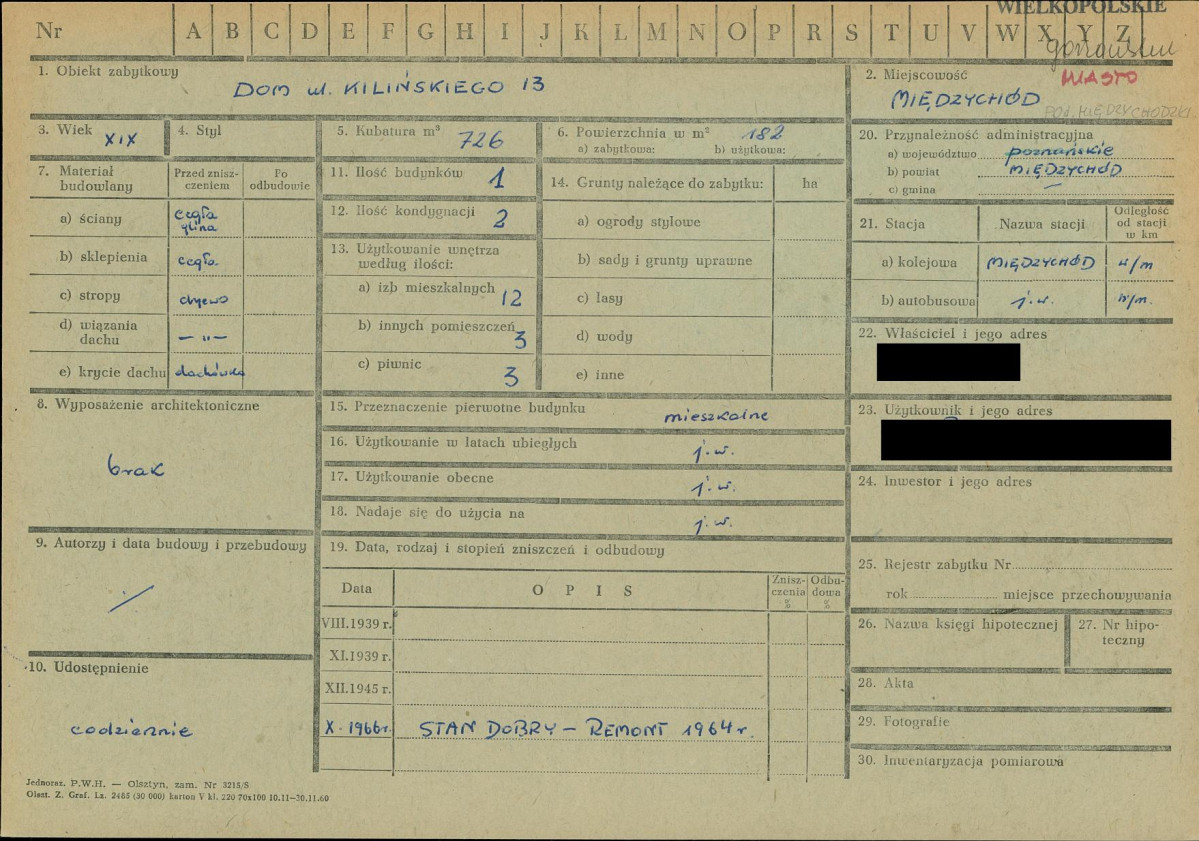 WIELKOPOLSKIE
Nr A B C D E F G H I J K L M N O P R S T U V W X Y Z
gorzowskie
1. Obiekt zabytkowy
DOM ul. KILIŃSKIEGO 13
2. Miejscowość
MIASTO
MIĘDZYCHÓD
POW. MIĘDZYCHODZKI
3. Wiek
XIX
4. Styl
5. Kubatura m³
726
6. Powierzchnia w m²
182
a) zabytkowa: b) użytkowa:
20. Przynależność administracyjna
a) województwo poznańskie
b) powiat MIĘDZYCHÓD
c) gmina —
7. Materiał budowlany
Przed zniszczeniem
Po odbudowie
a) ściany
cegła
glina
b) sklepienia
cegła
c) stropy
drzewo
d) wiązania dachu
— „ —
e) krycie dachu
dachówka
11. Ilość budynków
1
12. Ilość kondygnacji
2
13. Użytkowanie wnętrza według ilości:
a) izb mieszkalnych
12
b) innych pomieszczeń
3
c) piwnic
3
14. Grunty należące do zabytku:
ha
a) ogrody stylowe
b) sady i grunty uprawne
c) lasy
d) wody
e) inne
21. Stacja
Nazwa stacji
Odległość od stacji w km
a) kolejowa
MIĘDZYCHÓD
w/m
b) autobusowa
j.w.
w/m.
22. Właściciel i jego adres
23. Użytkownik i jego adres
24. Inwestor i jego adres
8. Wyposażenie architektoniczne
brak
15. Przeznaczenie pierwotne budynku
mieszkalne
16. Użytkowanie w latach ubiegłych
j.w.
17. Użytkowanie obecne
j.w.
18. Nadaje się do użycia na
j.w.
9. Autorzy i data budowy i przebudowy
/
19. Data, rodzaj i stopień zniszczeń i odbudowy
Data
OPIS
Zniszczenia %
Odbudowa %
VIII.1939 r.
XI.1939 r.
XII.1945 r.
X. 1966 r.
STAN DOBRY – REMONT 1964 r.
10. Udostępnienie
codziennie
25. Rejestr zabytku Nr
rok miejsce przechowywania
26. Nazwa księgi hipotecznej
27. Nr hipoteczny
28. Akta
29. Fotografie
30. Inwentaryzacja pomiarowa
Jednoraz. P.W.H. — Olsztyn, zam. Nr 3215/S
Olszt. Z. Graf. Lz. 2485 (30 000) karton V kl. 220 70x100 10.11—30.11.60